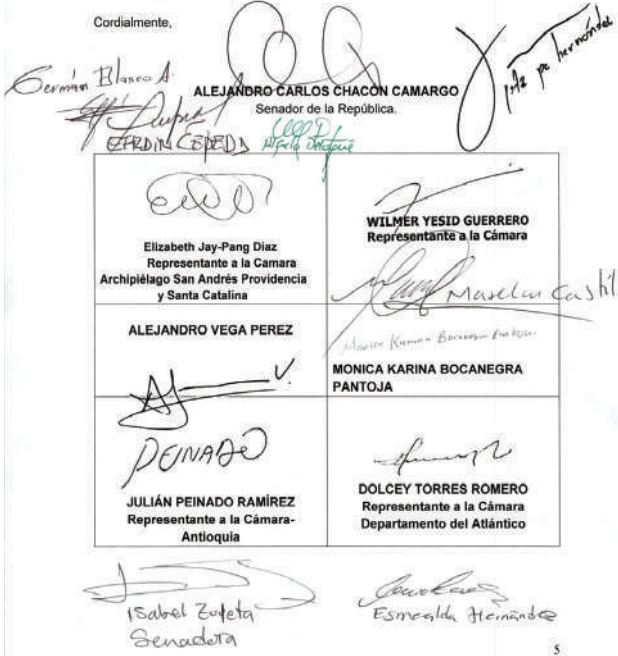 Cordialmente,
Germán Blanco A.
ALEJANDRO CARLOS CHACÓN CAMARGO
Senador de la República.
EFRAIN CEPEDA
Elizabeth Jay-Pang Diaz
Representante a la Camara
Archipiélago San Andrés Providencia
y Santa Catalina
WILMER YESID GUERRERO
Representante a la Cámara
ALEJANDRO VEGA PEREZ
Monica Karina Bocanegra Pantoja
MONICA KARINA BOCANEGRA
PANTOJA
PEINADO
JULIÁN PEINADO RAMÍREZ
Representante a la Cámara-
Antioquia
DOLCEY TORRES ROMERO
Representante a la Cámara
Departamento del Atlántico
Isabel Zuleta
Senadora
Esmeralda Hernández
5